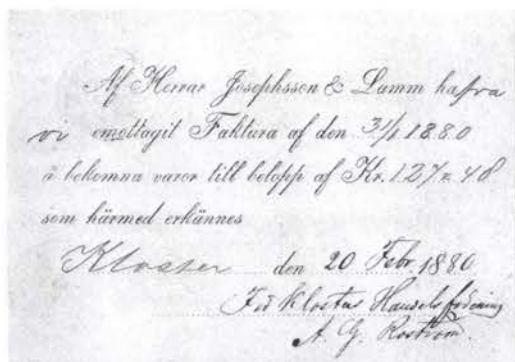 Af Herrar Josephsson & Lamm hafva
vi emottagit Faktura af den 31/1 1880
å bekomna varor till belopp af Kr. 127 = 48
som härmed erkännes
Kloster den 20 Febr. 1880
Kloster Handels förening
A. G. Roström